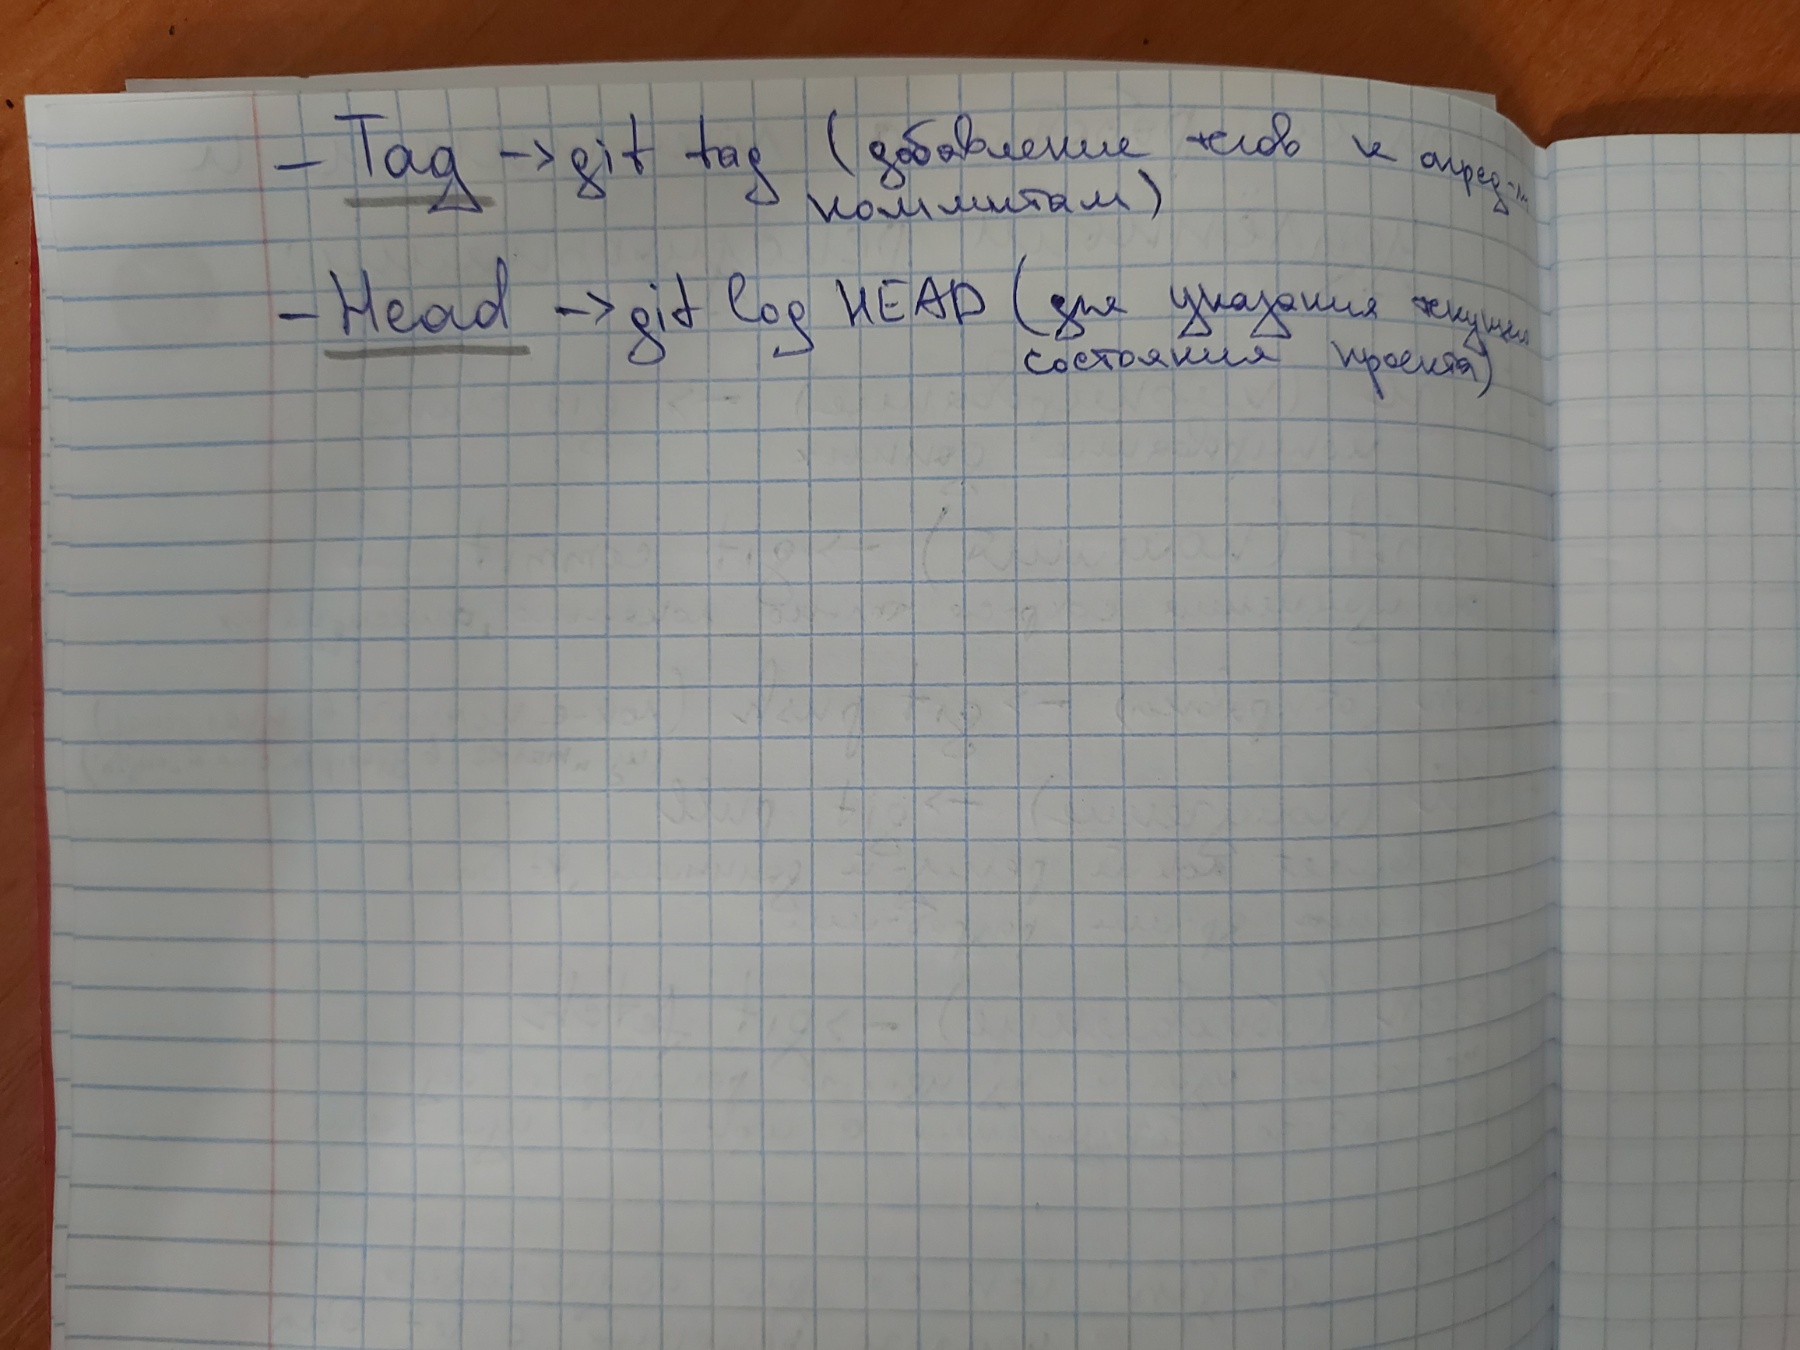 - Tag -> git tag (добавление тегов к опред-м
коммитам)
- Head -> git log HEAD (для указания текущего
состояния проекта)